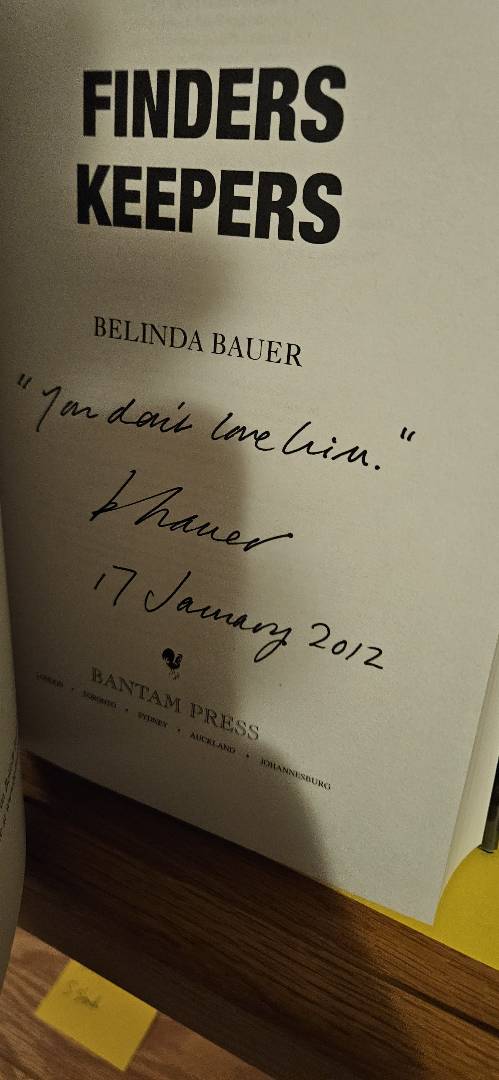 FINDERS
KEEPERS
BELINDA BAUER
"You don't love him."
BBauer
17 January 2012
BANTAM PRESS
LONDON • TORONTO • SYDNEY • AUCKLAND • JOHANNESBURG